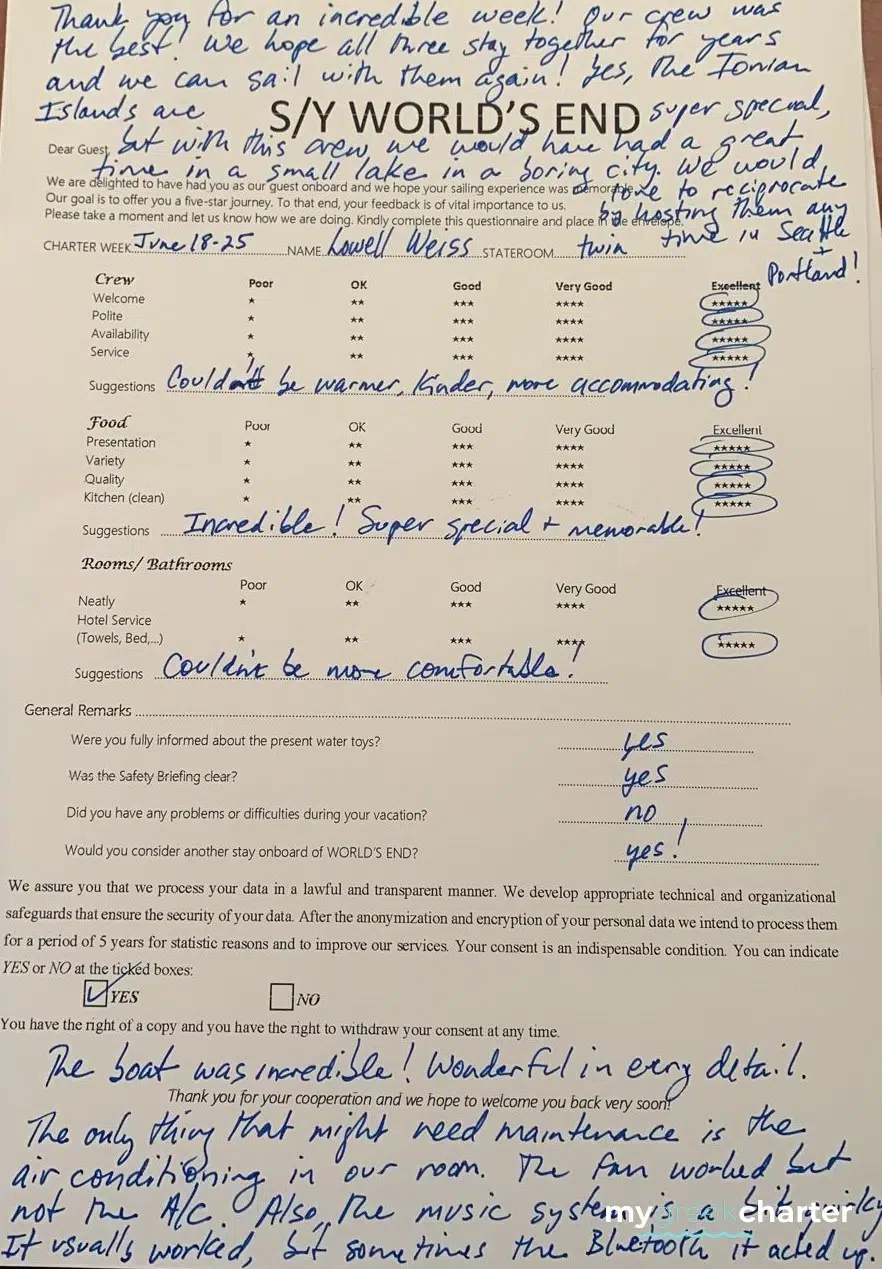 Thank you for an incredible week! Our crew was
the best! We hope all three stay together for years
and we can sail with them again! Yes, the Ionian
Islands are super special,
S/Y WORLD'S END
Dear Guest, but with this crew we would have had a great
time in a small lake in a boring city. We would
We are delighted to have had you as our guest onboard and we hope your sailing experience was memorable. love to reciprocate
Our goal is to offer you a five-star journey. To that end, your feedback is of vital importance to us. by hosting them any
Please take a moment and let us know how we are doing. Kindly complete this questionnaire and place in the envelope. time in Seattle
+ Portland!
CHARTER WEEK June 18-25 NAME Lowell Weiss STATEROOM twin
Crew Poor OK Good Very Good Excellent
Welcome ★ ★★ ★★★ ★★★★ ★★★★★
Polite ★ ★★★ ★★★★ ★★★★★
Availability ★ ★★ ★★★ ★★★★ ★★★★★
Service ★ ★★ ★★★ ★★★★ ★★★★★
Suggestions Couldn't be warmer, kinder, more accommodating!
Food Poor OK Good Very Good Excellent
Presentation ★ ★★ ★★★ ★★★★ ★★★★★
Variety ★ ★★ ★★★ ★★★★ ★★★★★
Quality ★ ★★ ★★★ ★★★★ ★★★★★
Kitchen (clean) ★ ★★ ★★★ ★★★★ ★★★★★
Suggestions Incredible! Super special + memorable!
Rooms/ Bathrooms
Poor OK Good Very Good Excellent
Neatly ★ ★★ ★★★ ★★★★ ★★★★★
Hotel Service
(Towels, Bed,...) ★ ★★ ★★★ ★★★★ ★★★★★
Suggestions Couldn't be more comfortable!
General Remarks
Were you fully informed about the present water toys? yes
Was the Safety Briefing clear? yes
Did you have any problems or difficulties during your vacation? no
Would you consider another stay onboard of WORLD'S END? yes!
We assure you that we process your data in a lawful and transparent manner. We develop appropriate technical and organizational
safeguards that ensure the security of your data. After the anonymization and encryption of your personal data we intend to process them
for a period of 5 years for statistic reasons and to improve our services. Your consent is an indispensable condition. You can indicate
YES or NO at the ticked boxes:
YES NO
You have the right of a copy and you have the right to withdraw your consent at any time.
The boat was incredible! Wonderful in every detail.
Thank you for your cooperation and we hope to welcome you back very soon!
The only thing that might need maintenance is the
air conditioning in our room. The fan worked but
not the A/C. Also, the music system is a bit quirky
It usually worked, but sometimes the Bluetooth it acted up.
mygreekcharter